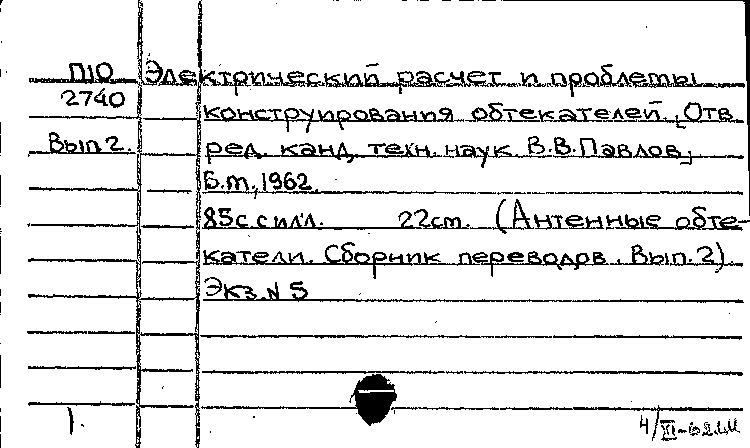 П10 Электрический расчет и проблемы
2740 конструирования обтекателей. [Отв.
Вып 2. ред. канд. техн. наук. В.В. Павлов]
Б.м., 1962.
85с. с илл. 22см. (Антенные обте-
катели. Сборник переводов. Вып. 2).
Экз. N 5
1.